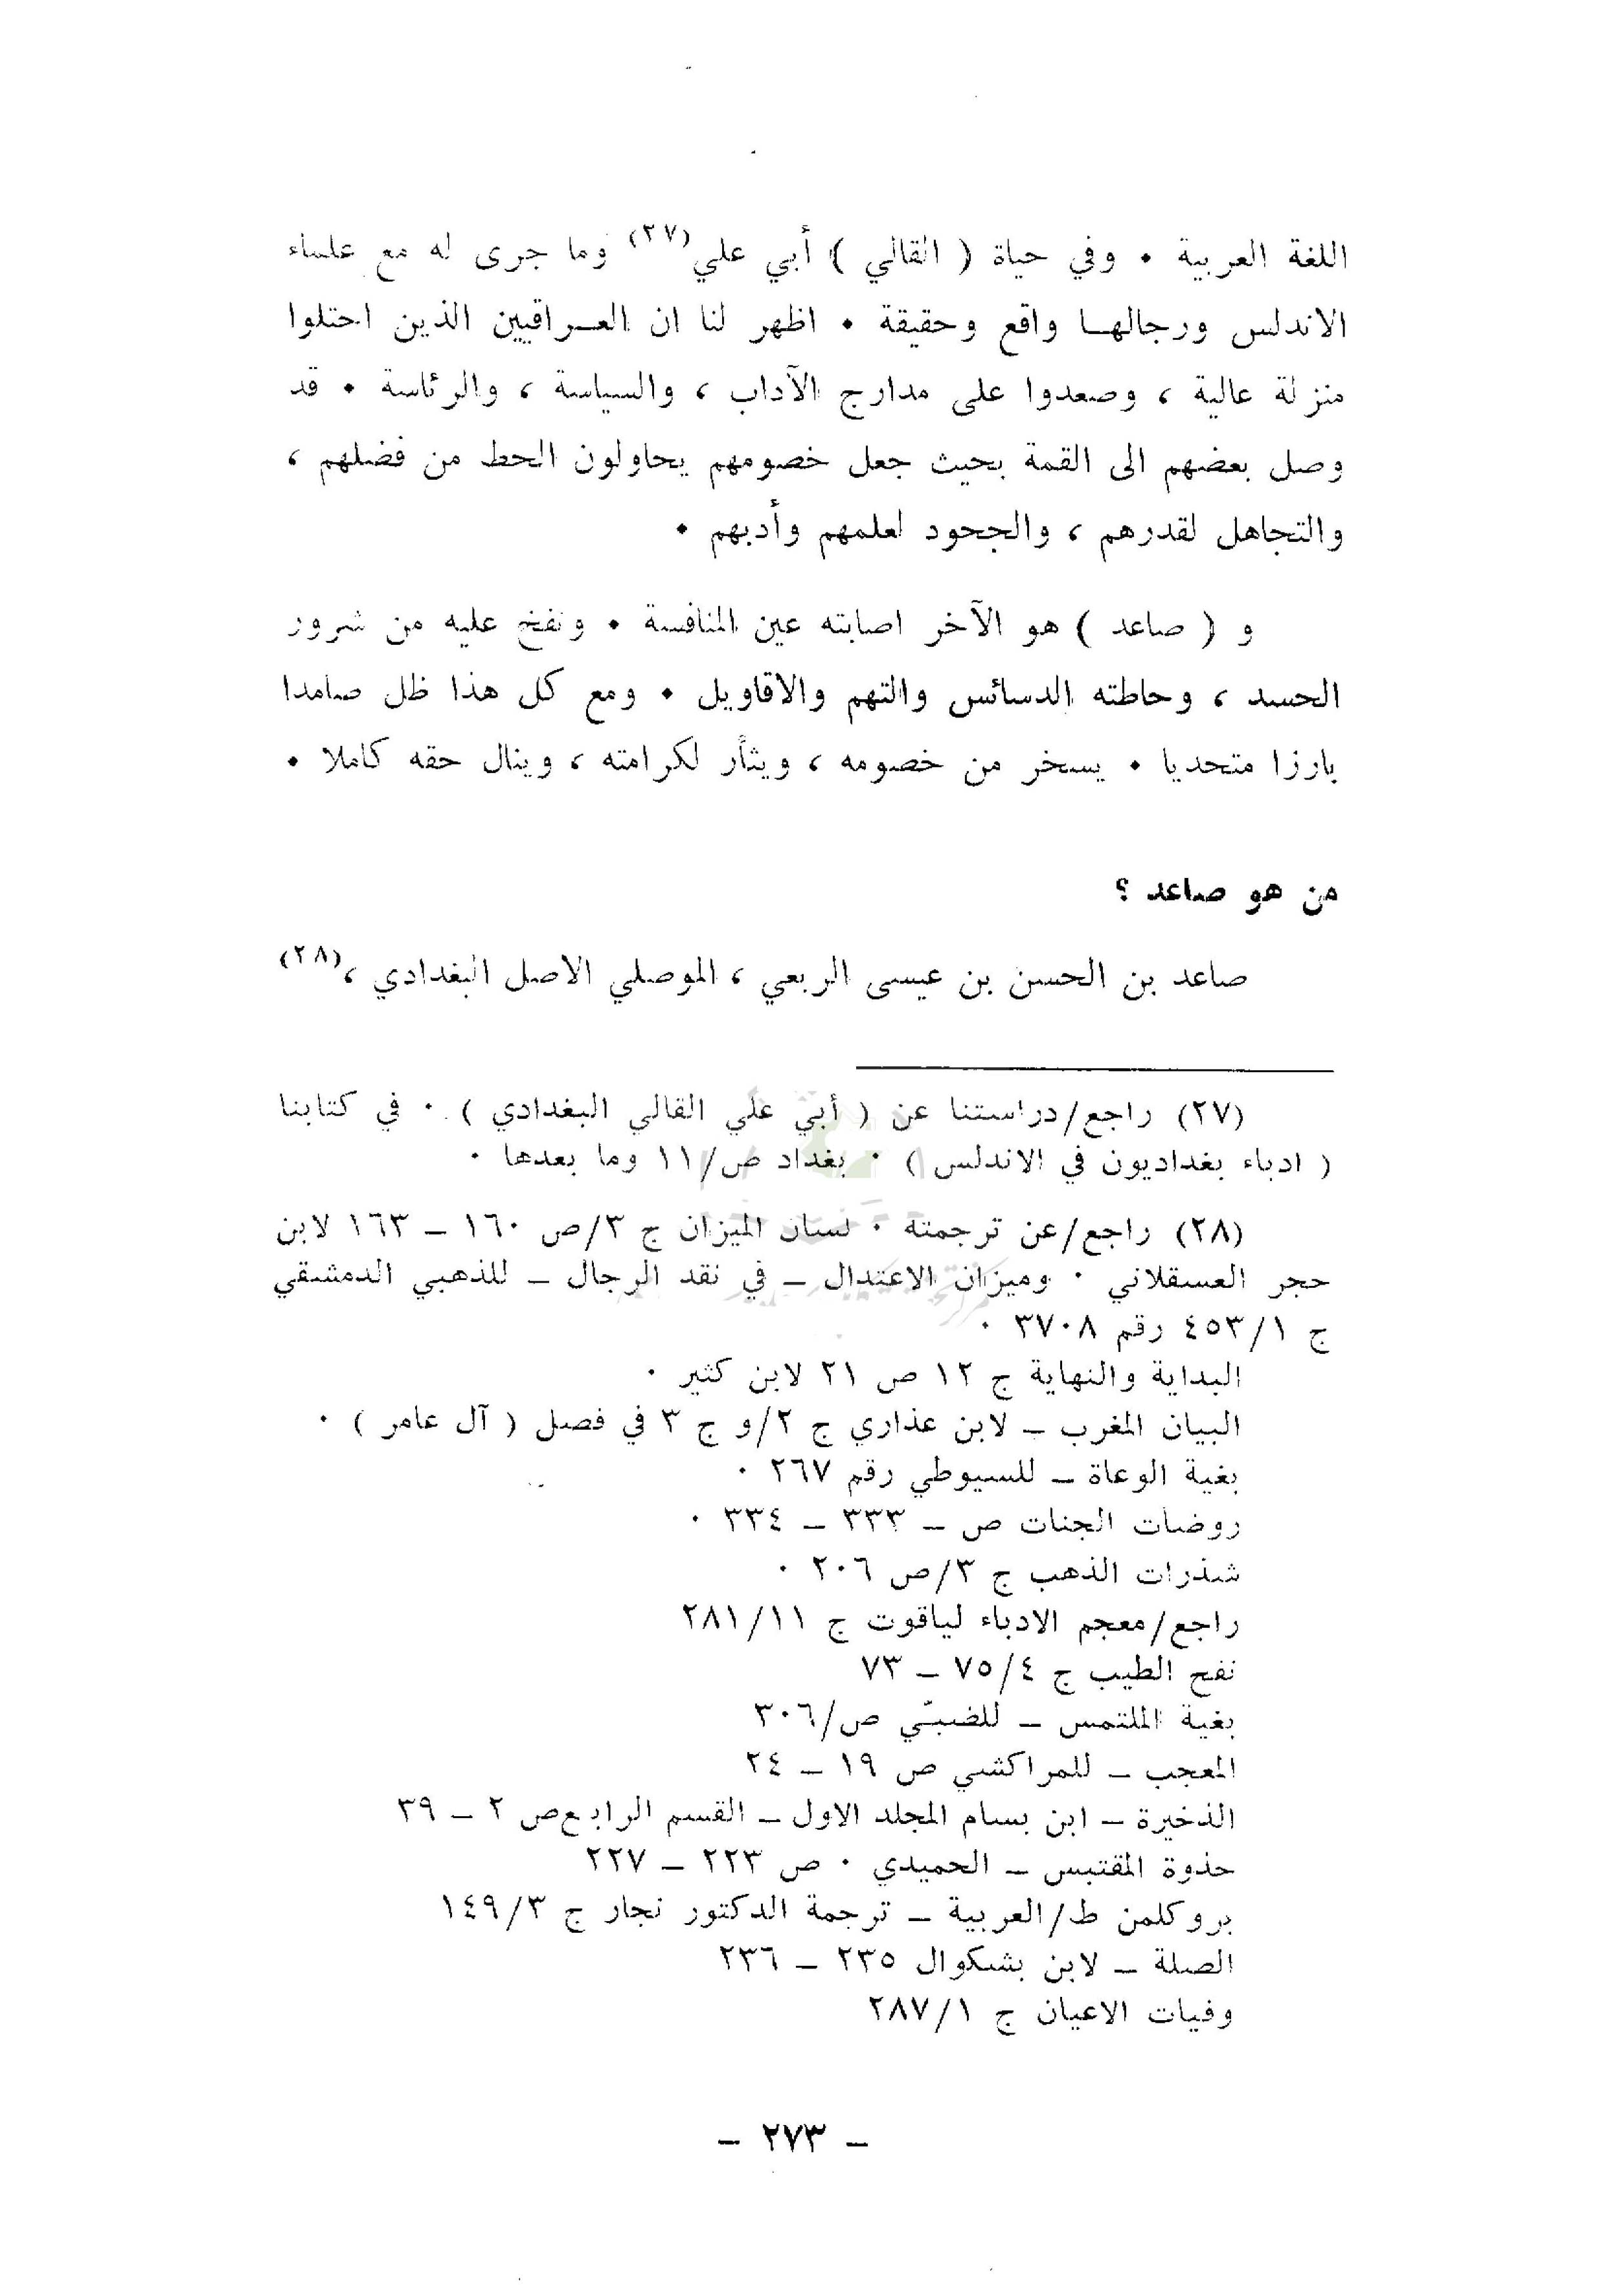 اللغة العربية ٠ وفي حياة ( القالي ) أبي علي(٢٧) وما جرى له مع علماء
الاندلس ورجالهـا واقع وحقيقة ٠ اظهر لنا ان العـراقيين الذين احتلوا
منزلة عالية ، وصعدوا على مدارج الآداب ، والسياسة ، والرئاسة ٠ قد
وصل بعضهم الى القمة بحيث جعل خصومهم يحاولون الحط من فضلهم ،
والتجاهل لقدرهم ، والجحود لعلمهم وأدبهم ٠
و ( صاعد ) هو الآخر اصابته عين المنافسة ٠ ونفخ عليه من شرور
الحسد ، وحاطته الدسائس والتهم والاقاويل ٠ ومع كل هذا ظل صامدا
بارزا متحديا ٠ يسخر من خصومه ، ويثأر لكرامته ، وينال حقه كاملا ٠
من هو صاعد ؟
صاعد بن الحسن بن عيسى الربعي ، الموصلي الاصل البغدادي ،(٢٨)
(٢٧) راجع/دراستنا عن ( أبي علي القالي البغدادي ) ٠ في كتابنا
( ادباء بغداديون في الاندلس ) ٠ بغداد ص/١١ وما بعدها ٠
(٢٨) راجع/عن ترجمته ٠ لسان الميزان ج ٣/ص ١٦٠ ــ ١٦٣ لابن
حجر العسقلاني ٠ وميزان الاعتدال ــ في نقد الرجال ــ للذهبي الدمشقي
ج ٤٥٣/١ رقم ٣٧٠٨ ٠
البداية والنهاية ج ١٢ ص ٢١ لابن كثير ٠
البيان المغرب ــ لابن عذاري ج ٢/و ج ٣ في فصل ( آل عامر ) ٠
بغية الوعاة ــ للسيوطي رقم ٢٦٧ ٠
روضات الجنات ص ــ ٣٣٣ ــ ٣٣٤ ٠
شذرات الذهب ج ٣/ص ٢٠٦ ٠
راجع/معجم الادباء لياقوت ج ٢٨١/١١
نفح الطيب ج ٧٥/٤ ــ ٧٣
بغية الملتمس ــ للضبـّي ص/٣٠٦
المعجب ــ للمراكشي ص ١٩ ــ ٢٤
الذخيرة ــ ابن بسام المجلد الاول ــ القسم الرابع ص ٢ ــ ٣٩
حذوة المقتبس ــ الحميدي ٠ ص ٢٢٣ ــ ٢٢٧
بروكلمن ط/العربية ــ ترجمة الدكتور نجار ج ١٤٩/٣
الصلة ــ لابن بشكوال ٢٣٥ ــ ٢٣٦
وفيات الاعيان ج ٢٨٧/١
ــ ٢٧٣ ــ